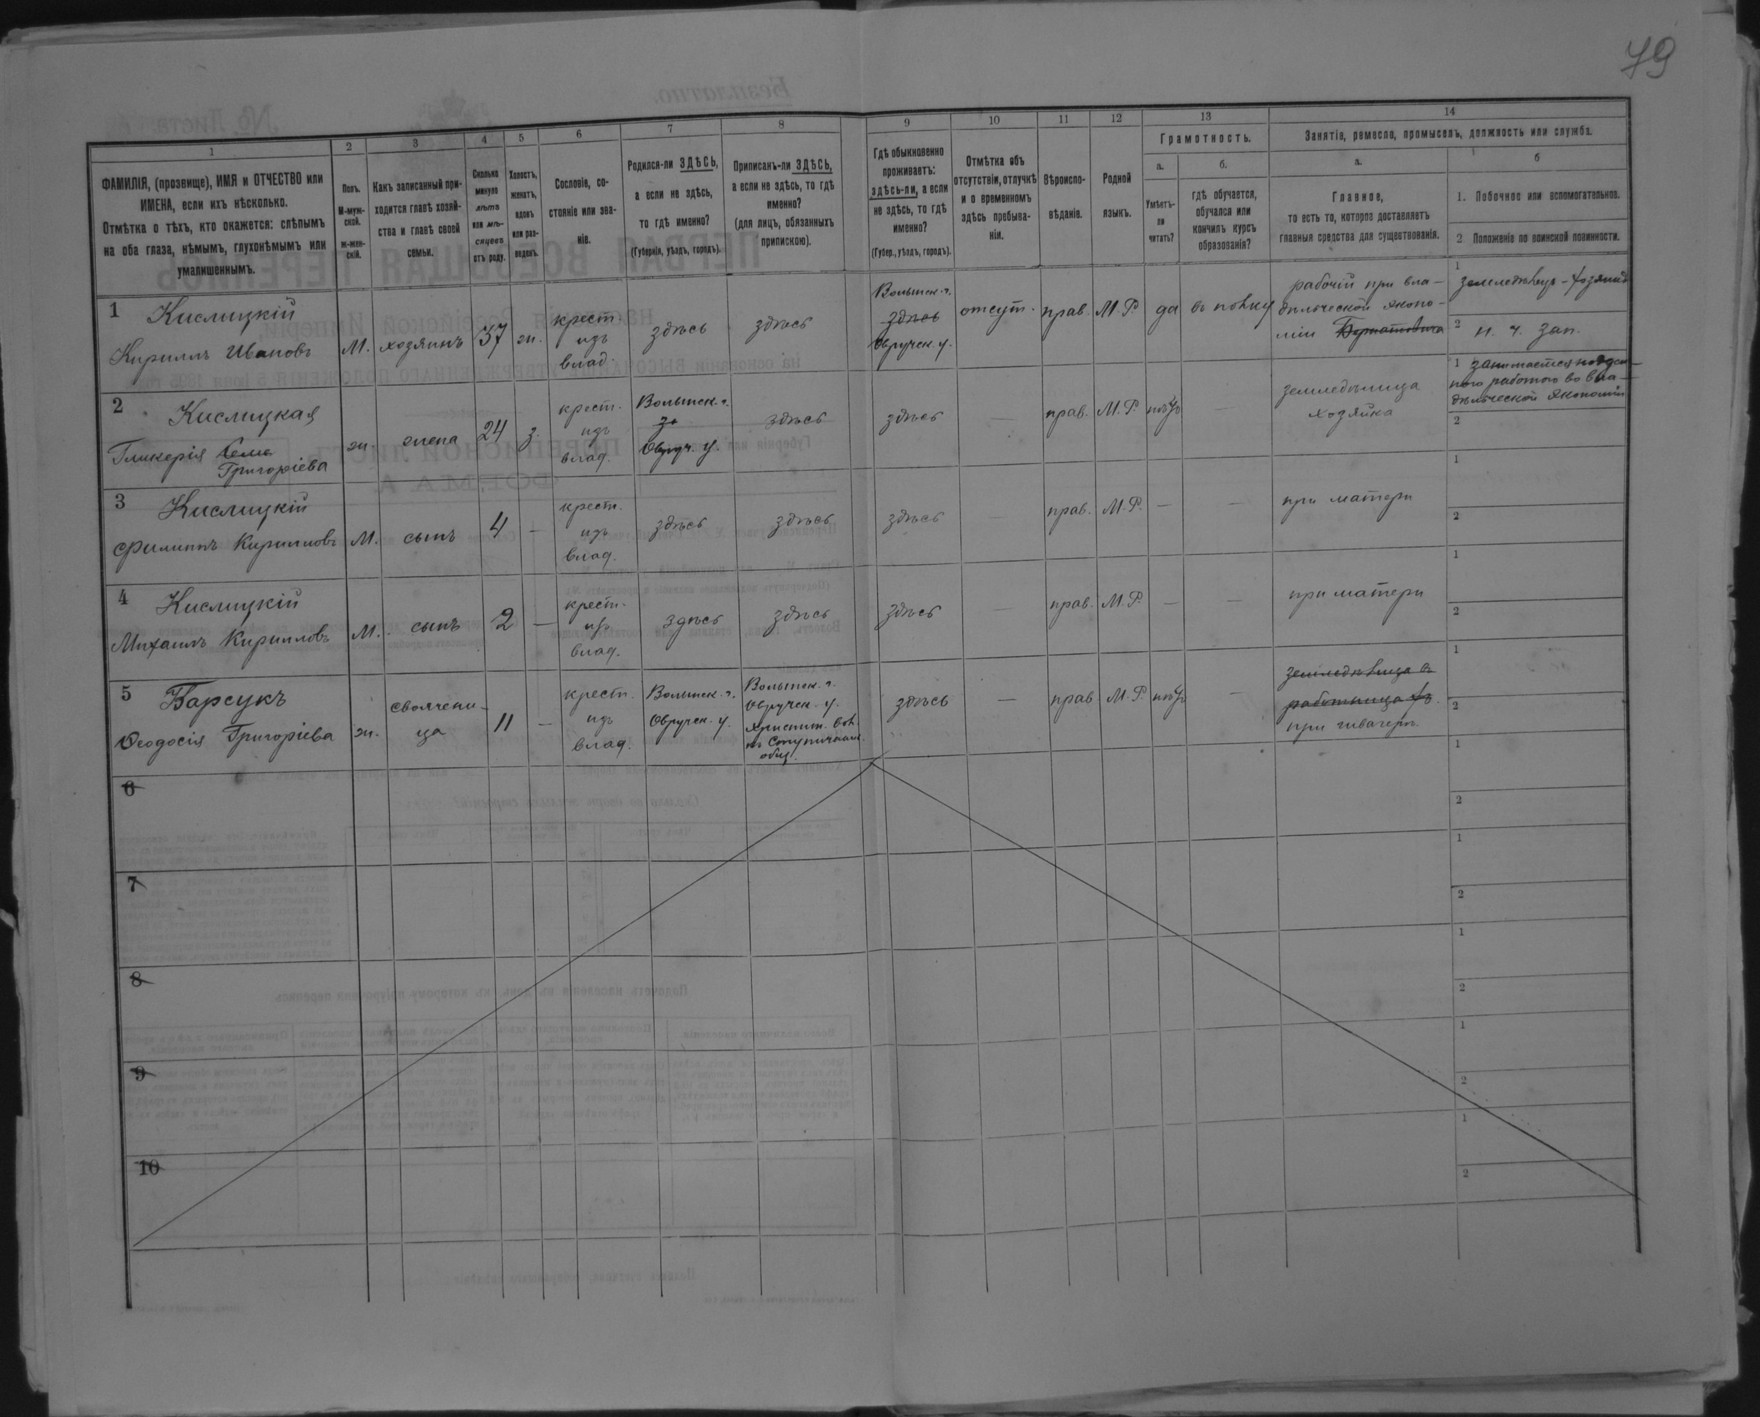 79
1
2
3
4
5
6
7
8
9
10
11
12
13
14
ФАМИЛІЯ, (прозвище), ИМЯ и ОТЧЕСТВО или
ИМЕНА, если ихъ нѣсколько.
Отмѣтка о тѣхъ, кто окажется: слѣпымъ
на оба глаза, нѣмымъ, глухонѣмымъ или
умалишеннымъ.
Полъ.
М-муж-
ской.
Ж-жен-
скій.
Какъ записанный при-
ходится главѣ хозяй-
ства и главѣ своей
семьи.
Сколько
минуло
лѣтъ
или мѣ-
сяцевъ
отъ роду.
Холостъ,
женатъ,
вдовъ
или раз-
веденъ.
Сословіе, со-
стояніе или зва-
ніе.
Родился-ли ЗДѢСЬ,
а если не здѣсь,
то гдѣ именно?
(Губернія, уѣздъ, городъ).
Приписанъ-ли ЗДѢСЬ,
а если не здѣсь, то гдѣ
именно?
(для лицъ, обязанныхъ
припискою).
Гдѣ обыкновенно
проживаетъ:
здѣсь-ли, а если
не здѣсь, то гдѣ
именно?
(Губер., уѣздъ, городъ).
Отмѣтка объ
отсутствіи, отлучкѣ
и о временномъ
здѣсь пребыва-
ніи.
Вѣроиспо-
вѣданіе.
Родной
языкъ.
Грамотность.
а.
Умѣетъ-
ли
читать?
б.
Гдѣ обучается,
обучался или
кончилъ курсъ
образованія?
Занятія, ремесло, промыселъ, должность или служба.
а.
Главное,
то есть то, которое доставляетъ
главныя средства для существованія.
б
1. Побочное или вспомогательное.
2 Положеніе по воинской повинности.
1 Кислицкій
Кириллъ Ивановъ
М. хозяинъ 37 ж.
крест.
изъ
влад.
здѣсь здѣсь
Волынск. г.
здѣсь
Овручск. у.
отсут. прав. М. Р. да въ полку
рабочій при вла-
дѣльческой эконо-
міи
1 земледѣлецъ - хозяинъ
2 н. ч. зап.
2 Кислицкая
Гликерія
Григоріева
ж. жена 24 з.
крест.
изъ
влад.
Волынск. г.
Овруч. у.
здѣсь здѣсь — прав. М. Р. нѣтъ —
земледѣлица
хозяйка
1 занимается поден-
ною работою во вла-
дѣльческой экономіи
2
3 Кислицкій
Филиппъ Кирилловъ
М. сынъ 4 —
крест.
изъ
влад.
здѣсь здѣсь здѣсь — прав. М. Р. — —
при матери
1
2
4 Кислицкій
Михаилъ Кирилловъ
М. сынъ 2 —
крест.
изъ
влад.
здѣсь здѣсь здѣсь — прав. М. Р. — —
при матери
1
2
5 Барсукъ
Ѳеодосія Григоріева
ж.
своячени-
ца
11 —
крест.
изъ
влад.
Волынск. г.
Овручск. у.
Волынск. г.
Овручск. у.
общ.
здѣсь — прав. М. Р. нѣтъ —
земледѣлица
работница
при
1
2
6
1
2
7
1
2
8
1
2
9
1
2
10
1
2